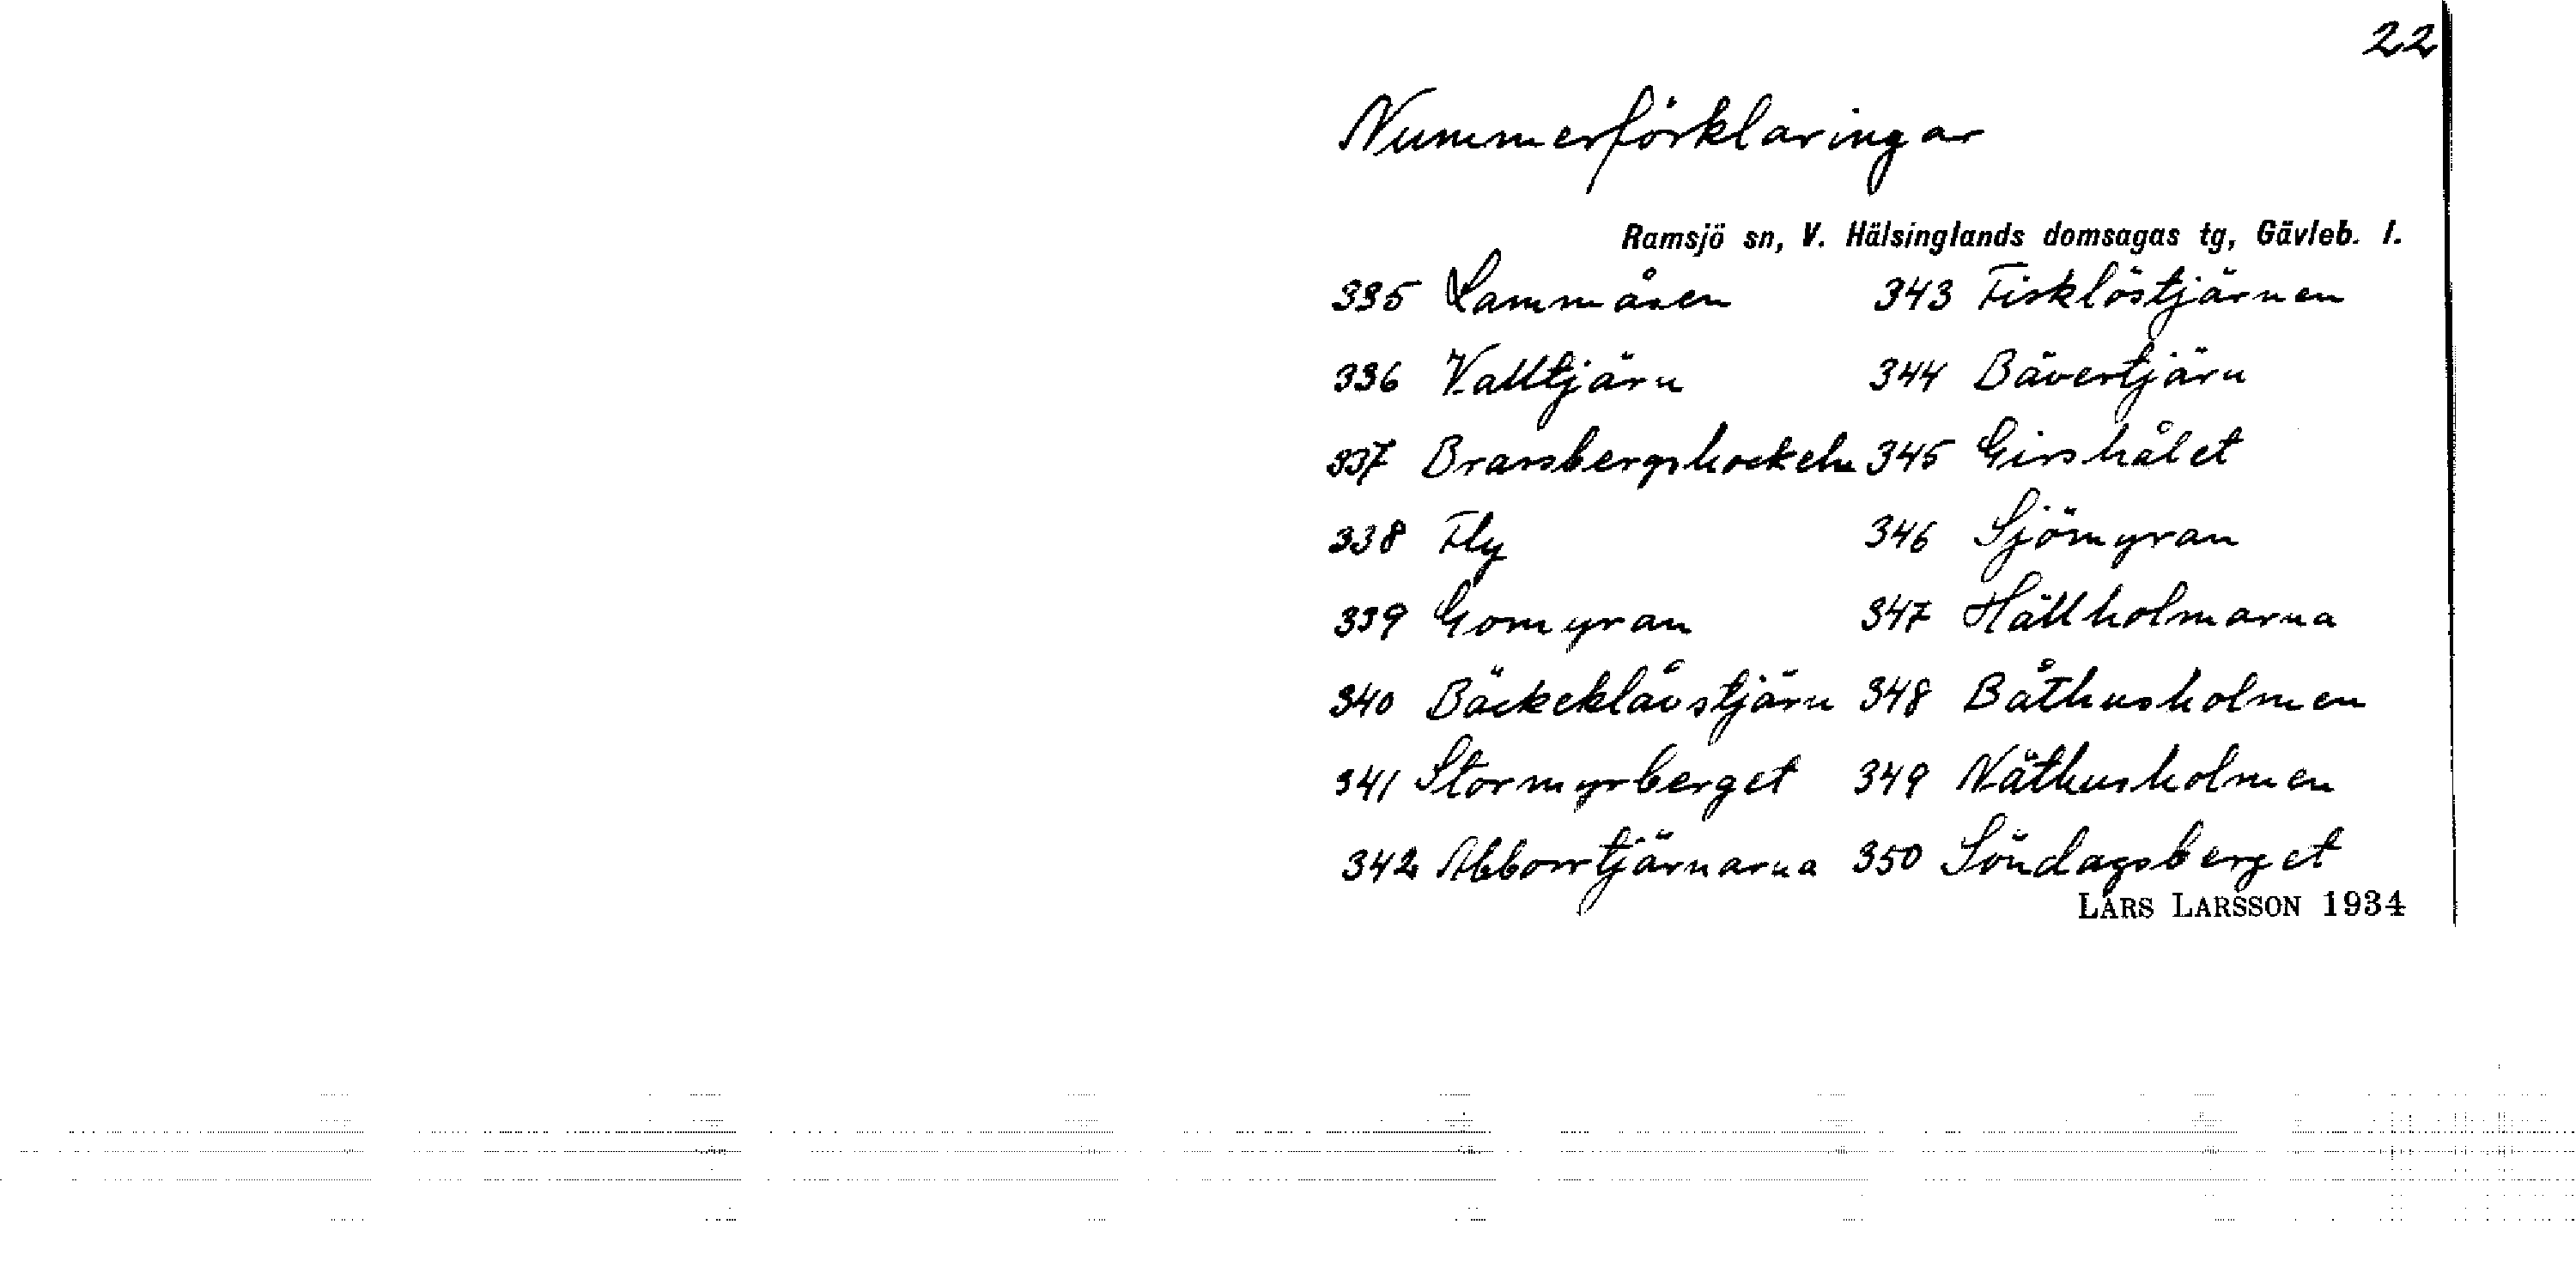 22
Nummerförklaringar
Ramsjö sn, V. Hälsinglands domsagas tg, Gävleb. l.
335 Lammåsen 343 Fisklöstjärnen
336 Valltjärn 344 Bävertjärn
337 Bransbergshockeln 345 Girshålet
338 Fly 346 Sjömyran
339 Gomyran 347 Hällholmarna
340 Bäckeklåvstjärn 348 Båthusholmen
341 Stormyrberget 349 Näthusholmen
342 Abborrtjärnarna 350 Söndagsberget
LARS LARSSON 1934